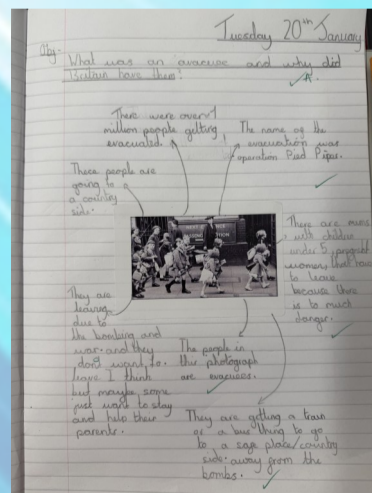 Tuesday 20th January
Obj-
What was an evacuee and why did
Britain have them?
There were over 1
million people getting
evacuated.
The name of the
evacuation was
operation Pied Piper.
These people are
going to
a country
side.
There are mums
with children
under 5, pregnant
women that have
to leave
because there
is to much
danger.
They are
leaving
due to
the bombing and
war. and they
don't want to
leave I think
but maybe some
just want to stay
and help their
parents.
The people in
this photograph
are evacuees.
They are getting a train
or a bus thing to go
to a safe place/country
side. away from the
bombs.